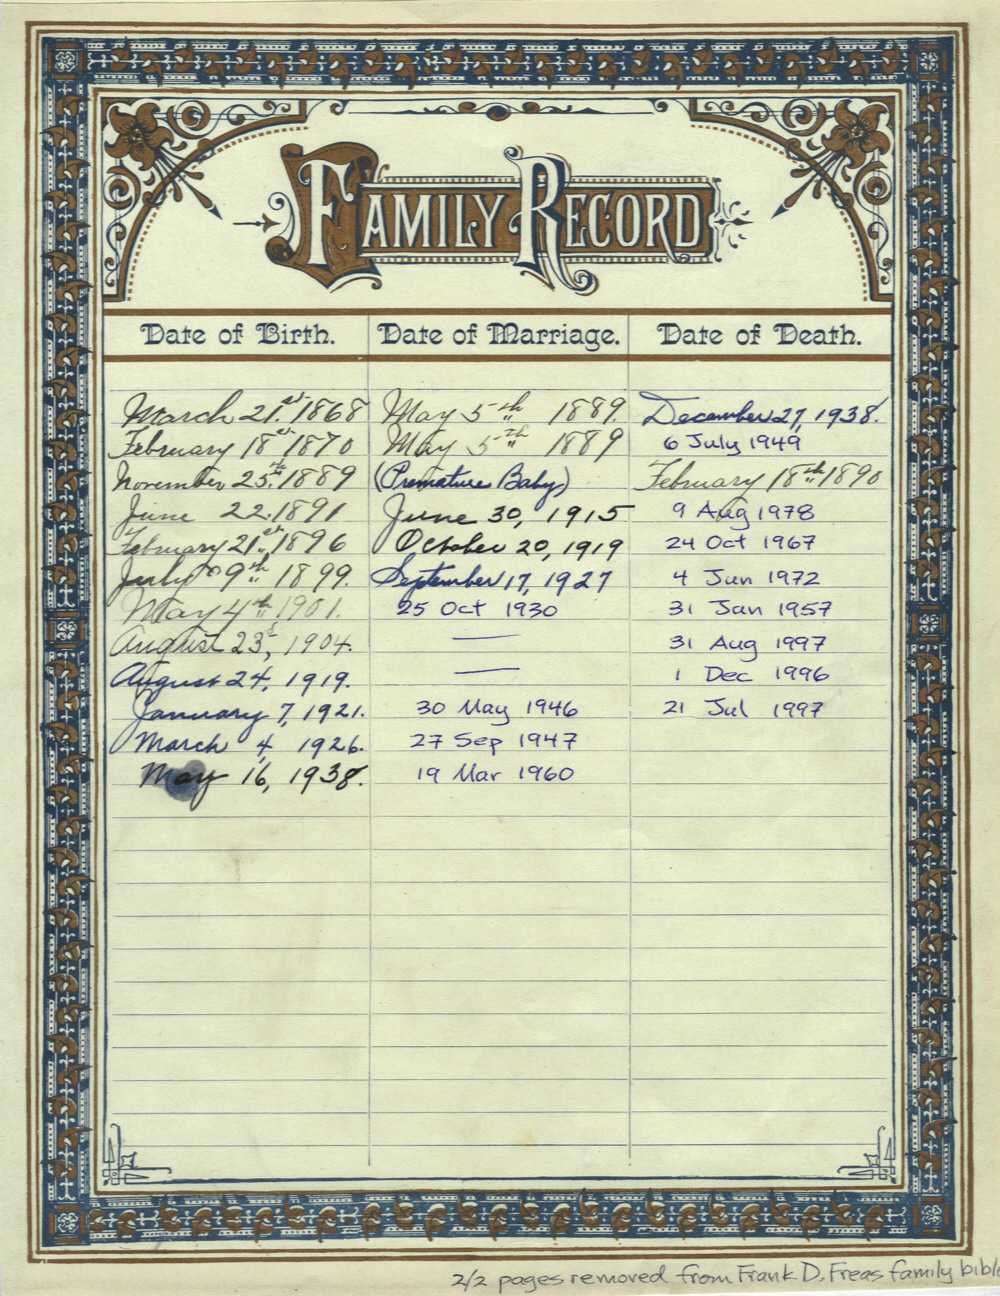 FAMILY RECORD
Date of Birth. Date of Marriage. Date of Death.
March 21.st 1868 May 5th 1889. December 27, 1938.
February 18st 1870 May 5th 1889 6 July 1949
November 25.th 1889 (Premature Baby) February 18th 1890
June 22. 1891 June 30, 1915 9 Aug 1978
February 21st 1896 October 20, 1919 24 Oct 1967
July 9th 1899. September 17, 1927 4 Jun 1972
May 4th 1901. 25 Oct 1930 31 Jan 1957
August 23, 1904. — 31 Aug 1997
August 24, 1919. — 1 Dec 1996
January 7, 1921. 30 May 1946 21 Jul 1997
March 4, 1926. 27 Sep 1947
May 16, 1938. 19 Mar 1960
2/2 pages removed from Frank D. Freas family bible